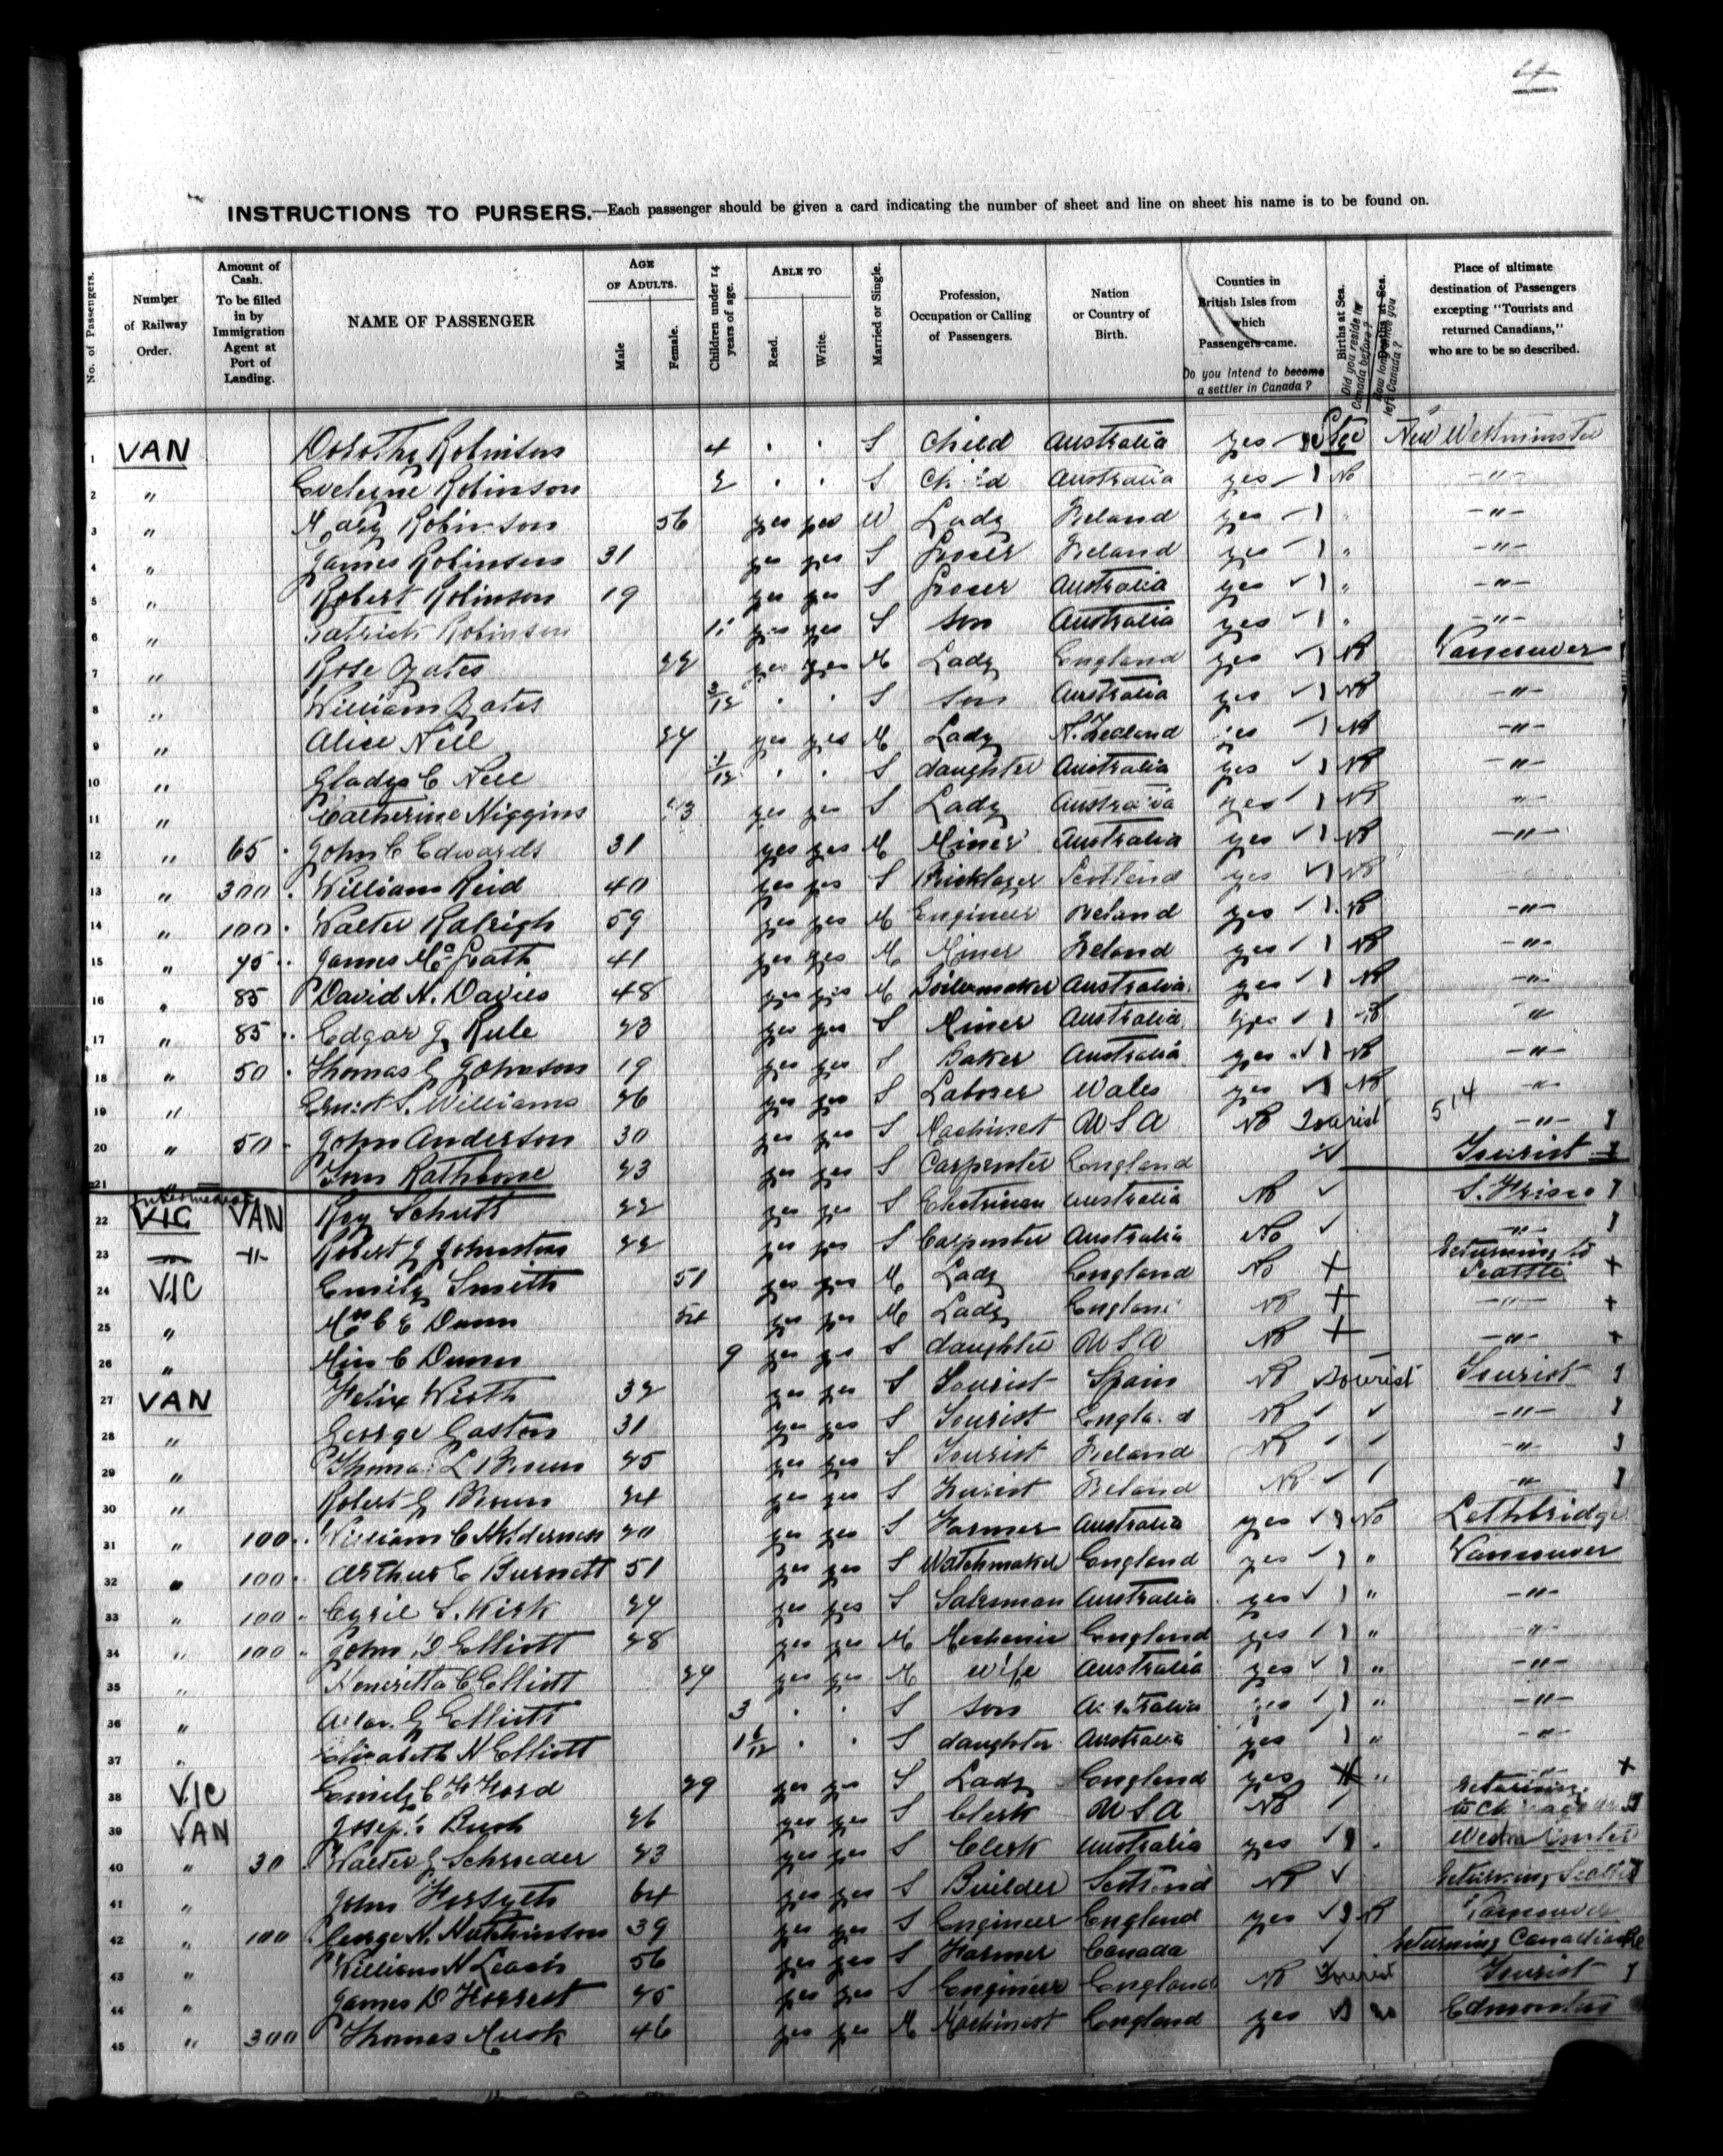 4
INSTRUCTIONS TO PURSERS.—Each passenger should be given a card indicating the number of sheet and line on sheet his name is to be found on.
No. of Passengers. Number of Railway Order. Amount of Cash. To be filled in by Immigration Agent at Port of Landing. NAME OF PASSENGER AGE OF ADULTS. Male Female. Children under 14 years of age. ABLE TO Read. Write. Married or Single. Profession, Occupation or Calling of Passengers. Nation or Country of Birth. Counties in British Isles from which Passengers came. Do you intend to become a settler in Canada? Births at Sea. Did you reside in Canada before? Deaths at Sea. How long since you left Canada? Place of ultimate destination of Passengers excepting "Tourists and returned Canadians," who are to be so described.
1 VAN Dorothy Robinson 4 . . S Child Australia yes New Westminster
2 " Evelyne Robinson 2 . . S Child Australia yes No -"-
3 " Mary Robinson 56 yes yes W Lady Ireland yes " -"-
4 " James Robinson 31 yes yes S Grocer Ireland yes " -"-
5 " Robert Robinson 19 yes yes S Grocer Australia yes " -"-
6 " Patrick Robinson yes yes S Son Australia yes " -"-
7 " Rose 22 yes yes M Lady England yes No Vancouver
8 " William 3/12 . . S Son Australia yes No -"-
9 " Alice Nell 24 yes yes M Lady N. Zealand yes No -"-
10 " Gladys C Nell . . S daughter Australia yes No -"-
11 " Catherine Higgins yes yes S Lady Australia yes No -"-
12 " 65 John C Edwards 31 yes yes M Miner Australia yes No -"-
13 " 300 William Reid 40 yes yes S Bricklayer Scotland yes No
14 " 100 Walter Raleigh 59 yes yes M Engineer Ireland yes No -"-
15 " 45 James McGrath 41 yes yes M Miner Ireland yes No -"-
16 " 85 David H. Davies 48 yes yes M Boilermaker Australia yes No -"-
17 " 85 Edgar J Rule 23 yes yes S Miner Australia yes No "
18 " 50 Thomas G Johnson 19 yes yes S Baker Australia yes No -"-
19 " Ernest S. Williams 26 yes yes S Laborer Wales yes No -"-
20 " 50 John Anderson 30 yes yes S Machinist U S A No Tourist 514 -"-
21 " Tom Rathbone 23 yes yes S Carpenter England Tourist
Intermediate
22 VIC VAN Roy Schutt 22 yes yes S Electrician Australia No S. Frisco
23 -"- -"- Robert J Johnston 22 yes yes S Carpenter Australia No -"-
24 VIC Emily Smith 51 yes yes M Lady England No + Returning to Seattle +
25 " Mrs C E Dunn 54 yes yes M Lady England No + -"- +
26 " Miss C Dunn 9 yes yes S daughter U S A No + -"- +
27 VAN Felix Wirth 32 yes yes S Tourist Spain No Tourist Tourist
28 " George Gaston 31 yes yes S Tourist England No -"-
29 " Thomas L Brown 25 yes yes S Tourist Ireland No "
30 " Robert G Brown 24 yes yes S Tourist Ireland No -"-
31 " 100 William C 20 yes yes S Farmer Australia yes No Lethbridge
32 " 100 Arthur E Burnett 51 yes yes S Watchmaker England yes " Vancouver
33 " 100 Cyril S. Kirk 24 yes yes S Salesman Australia yes " -"-
34 " 100 John Elliott 28 yes yes M Mechanic England yes " "
35 " Henrietta C Elliott 24 yes yes M Wife Australia yes " -"-
36 " G Elliott 3 . . S Son Australia yes " -"-
37 " Elizabeth N Elliott 1 6/12 . . S daughter Australia yes " -"-
38 VIC Emily C F Ford 29 yes yes S Lady England yes " -"- +
39 VAN Joseph Bush 26 yes yes S Clerk U S A No Returning to Chicago
40 " 30 Walter G Schroeder 23 yes yes S Clerk Australia yes Westminster
41 " John Forsyth 64 yes yes S Builder Scotland No Returning Seattle
42 " 100 George N. Hutchinson 39 yes yes S Engineer England yes No Vancouver
43 " William N Leach 56 yes yes S Farmer Canada Returning Canadian
44 " James D Forrest 45 yes yes S Engineer England No Tourist Tourist
45 " 300 Thomas Musk 46 yes yes M Machinist England yes No Edmonton